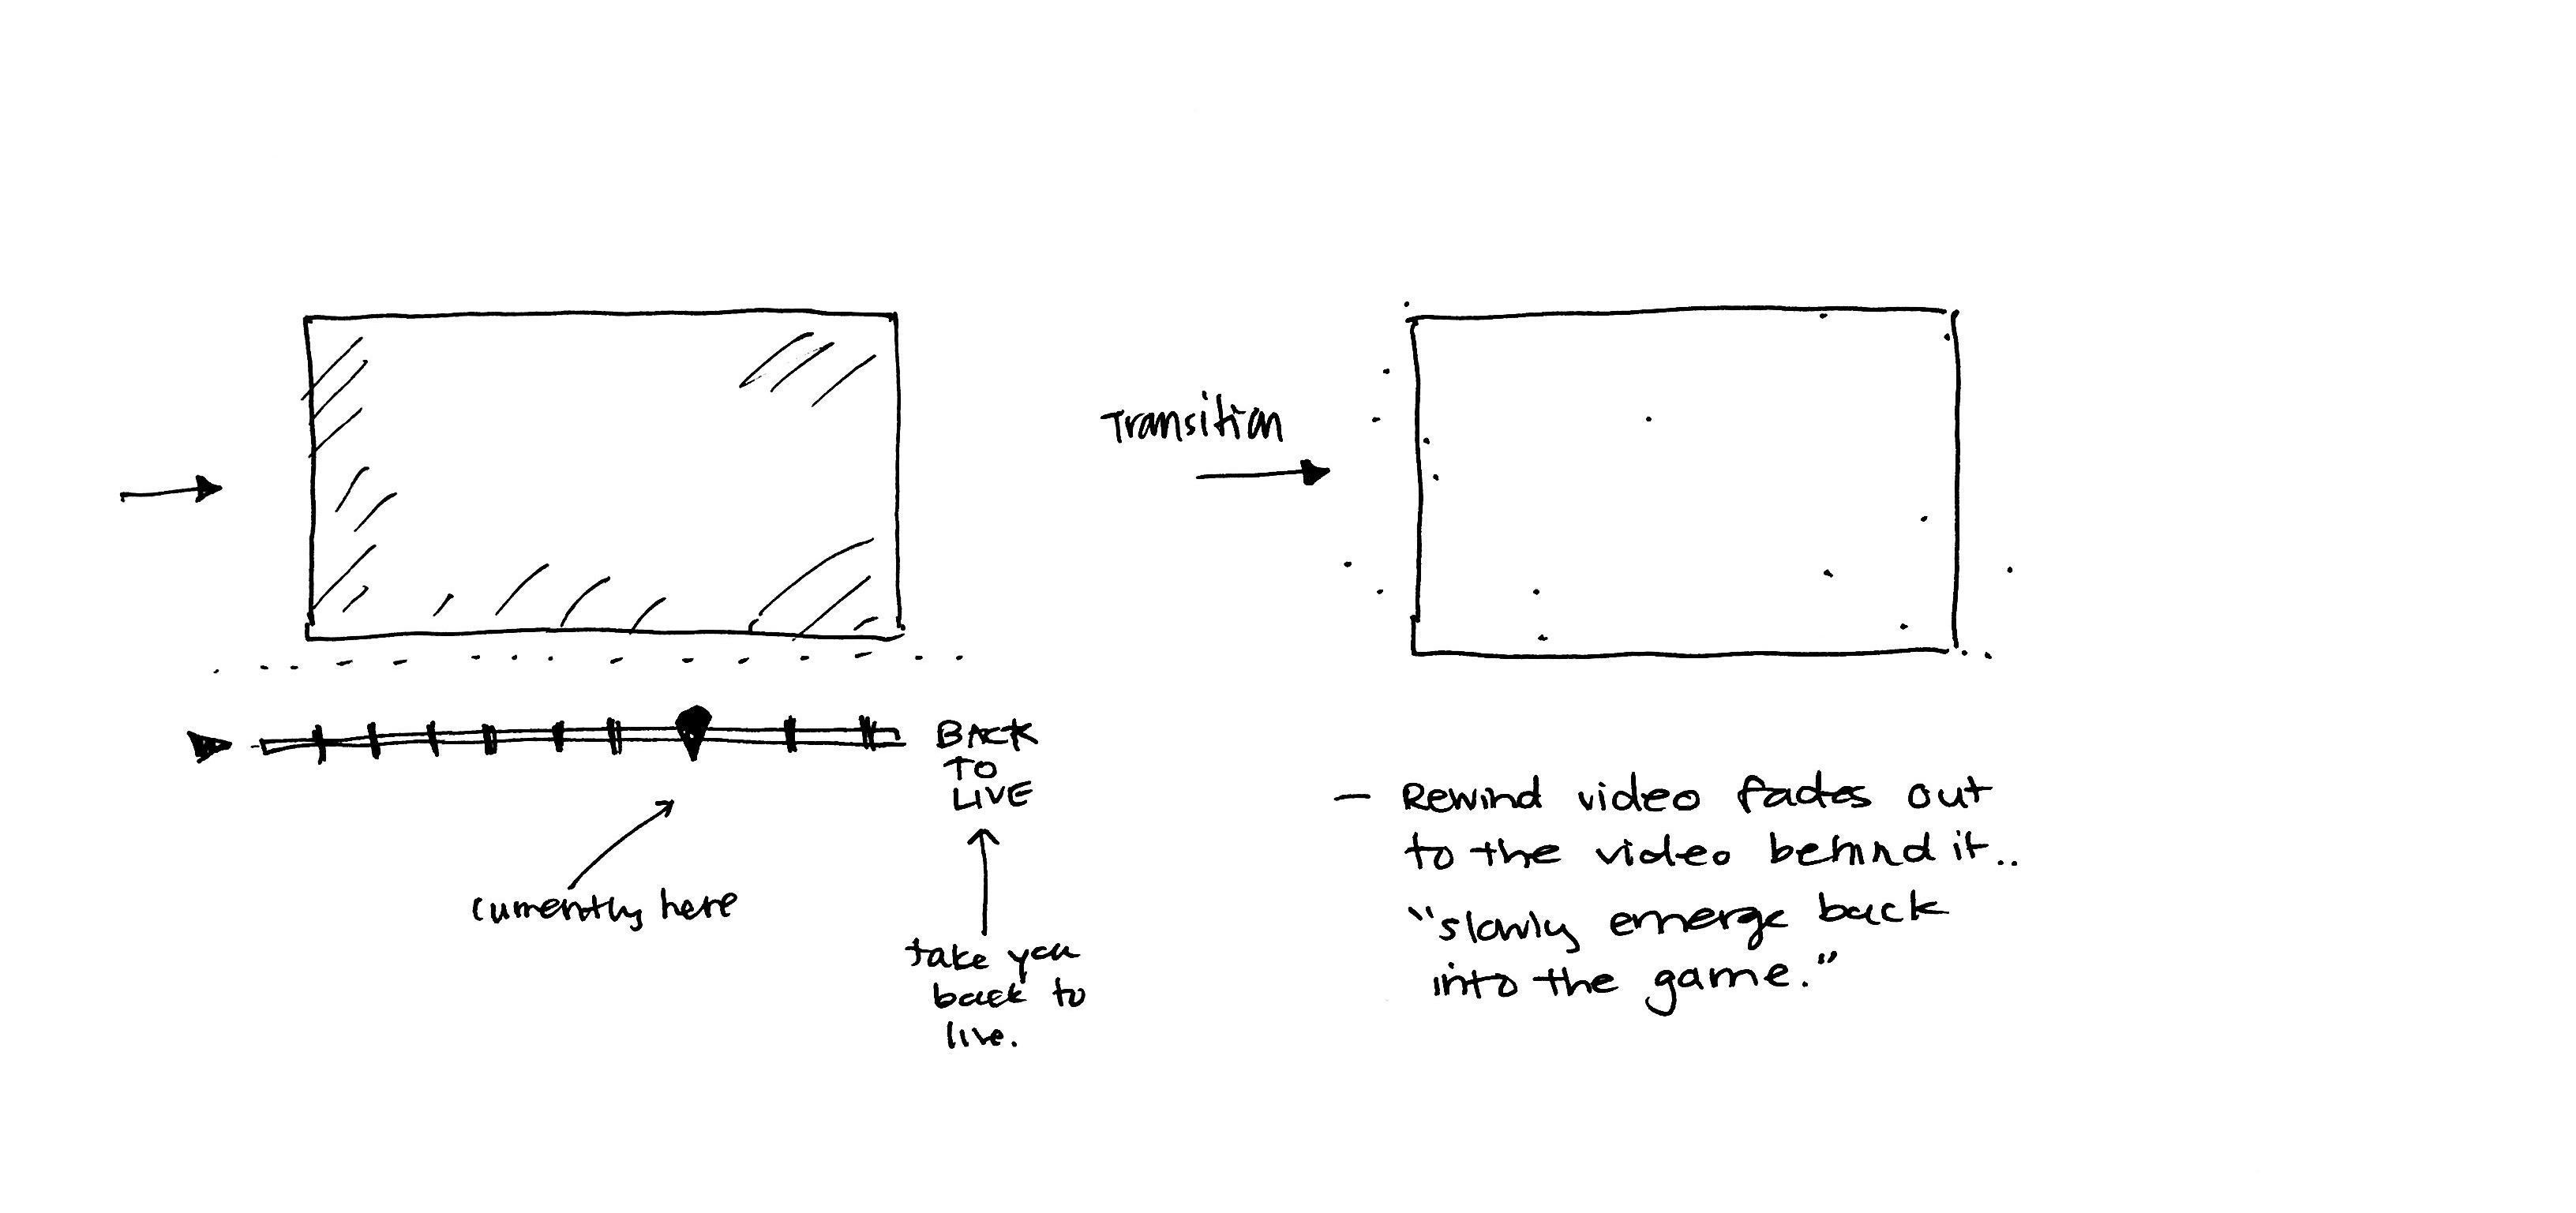 Transition
BACK
TO
LIVE
currently here
take you
back to
live.
— Rewind video fades out
to the video behind it..
"slowly emerge back
into the game."